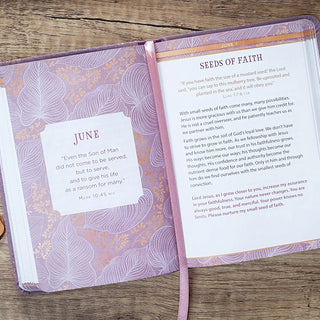 JUNE
"Even the Son of Man
did not come to be served,
but to serve,
and to give his life
as a ransom for many."
MARK 10:45 NIV
JUNE 1
SEEDS OF FAITH
"If you have faith the size of a mustard seed," the Lord
said, "you can say to this mulberry tree, 'Be uprooted and
planted in the sea,' and it will obey you."
LUKE 17:6
With small seeds of faith come many, many possibilities.
Jesus is more gracious with us than we give him credit for.
He is not a cruel overseer, and he patiently teaches us as
we partner with him.
Faith grows in the soil of God's loyal love. We don't have
to strive to grow in faith. As we fellowship with Jesus
and know him more, our trust in his faithfulness grows.
His ways become our ways; his thoughts become our
thoughts. His confidence and authority become the
nutrient dense food for our faith. Only in him and through
him do we find ourselves with the smallest seeds of
conviction.
Lord Jesus, as I grow closer to you, increase my assurance
in your faithfulness. Your nature never changes. You are
always good, true, and merciful. Your power knows no
limits. Please nurture my small seed of faith.